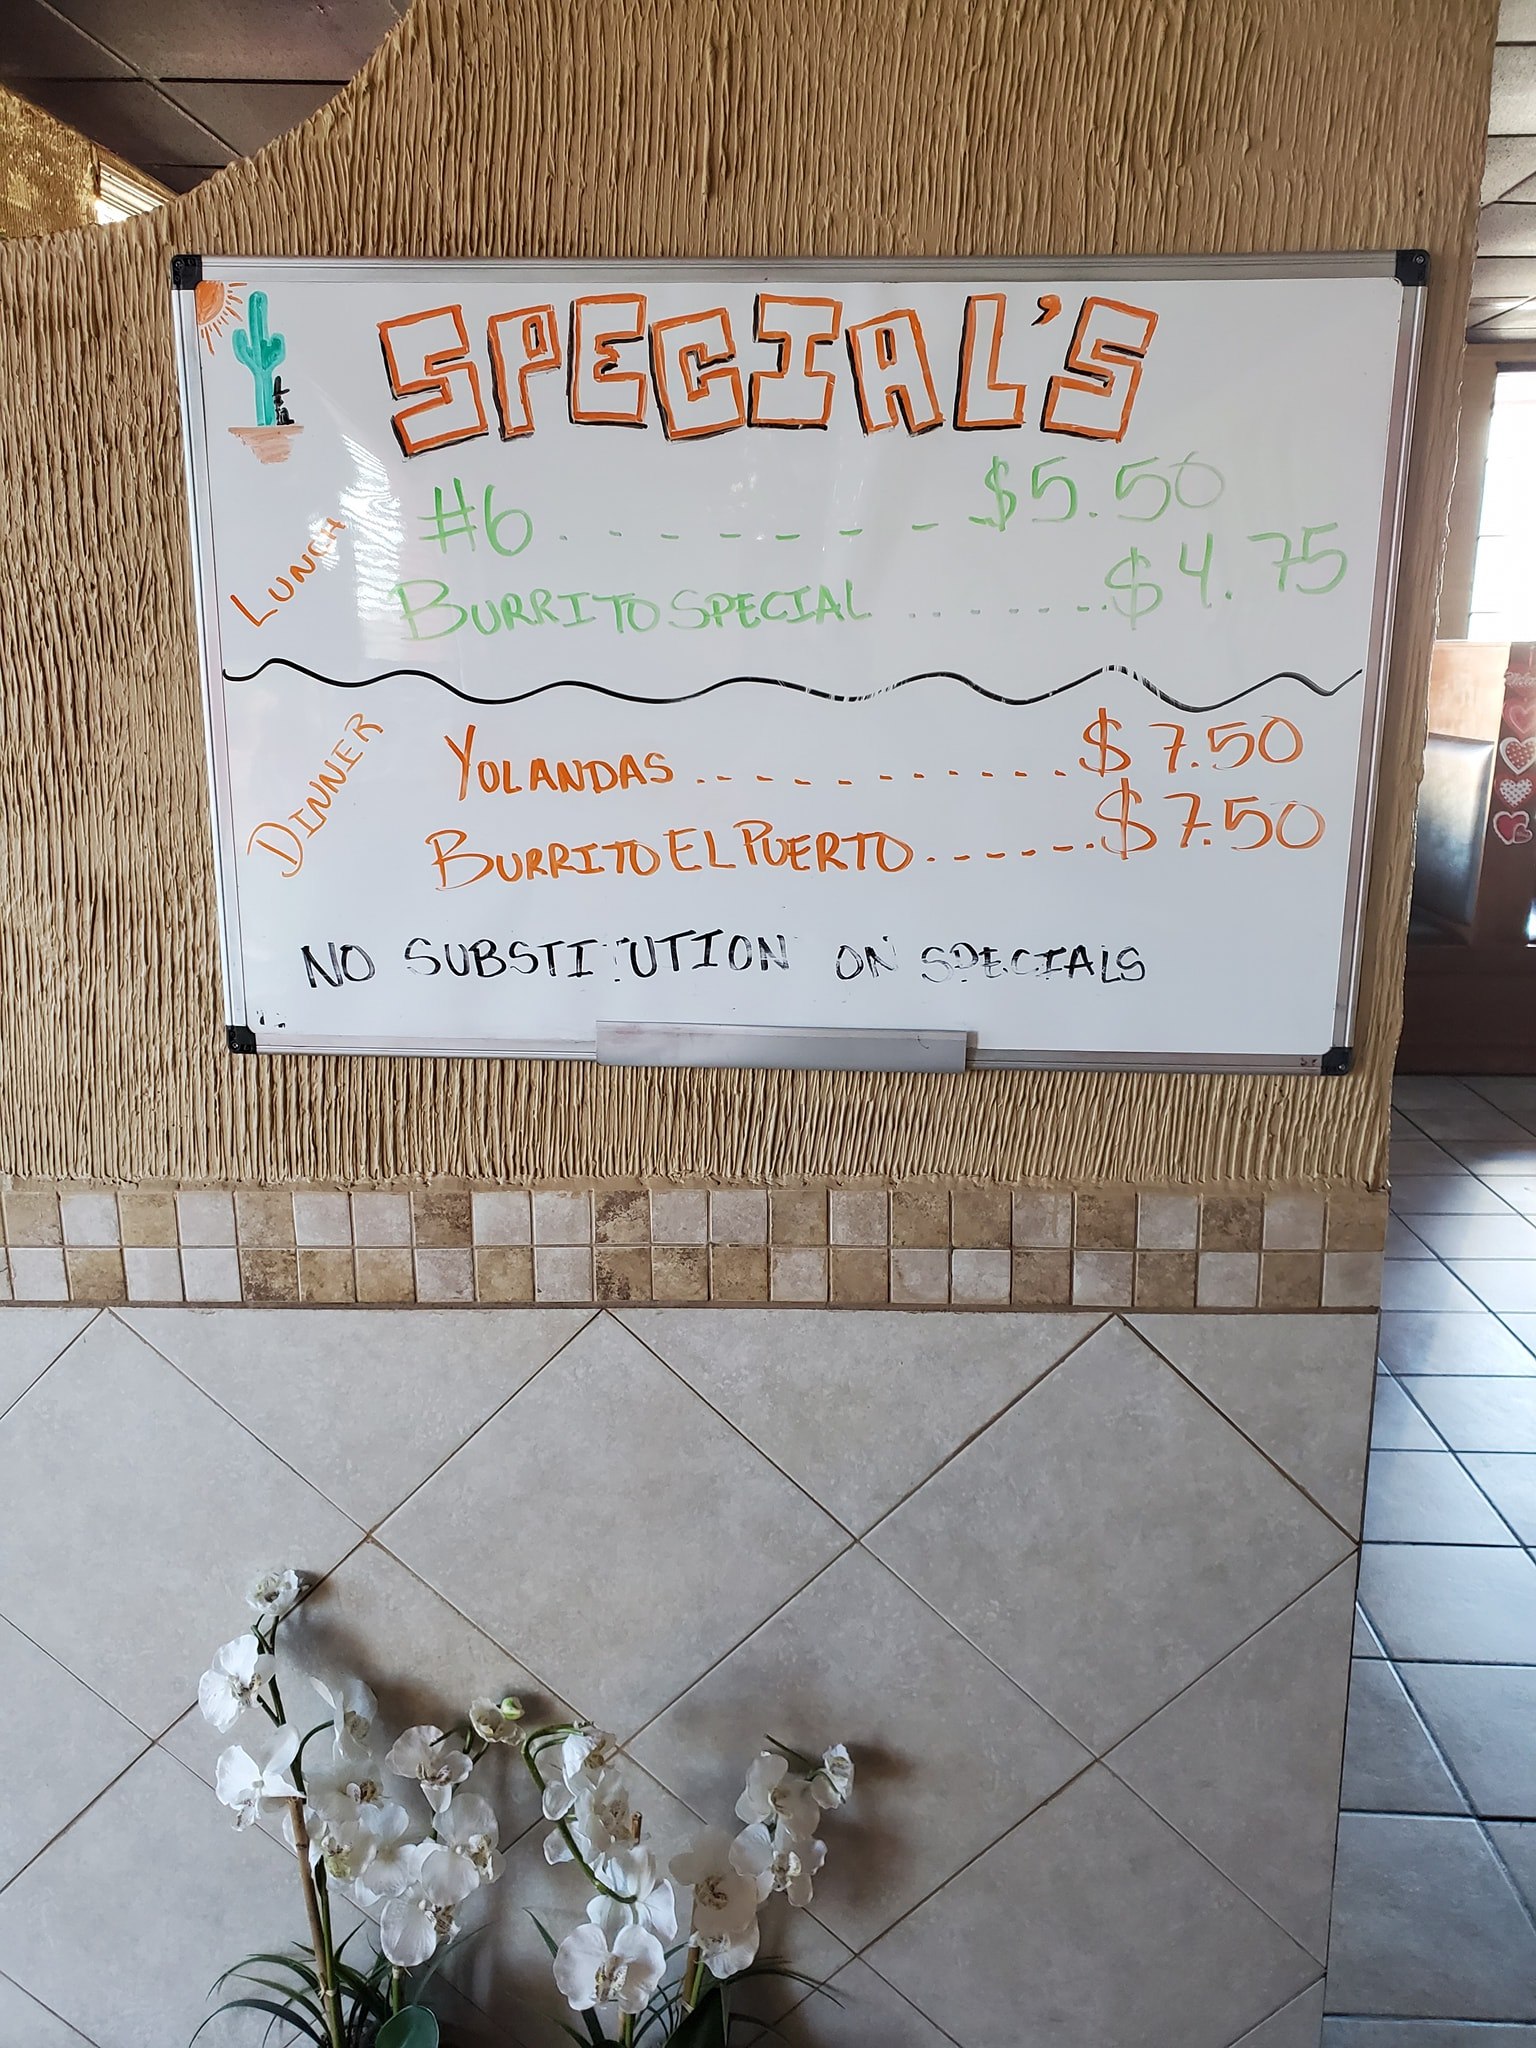 SPECIAL'S
LUNCH
#6 . - - - - - - - - $5.50
BURRITO SPECIAL . . - - - - . . $4.75
DINNER
YOLANDAS . . - - - - - - - - - . $7.50
BURRITO EL PUERTO . - - - - - . . $7.50
NO SUBSTITUTION ON SPECIALS